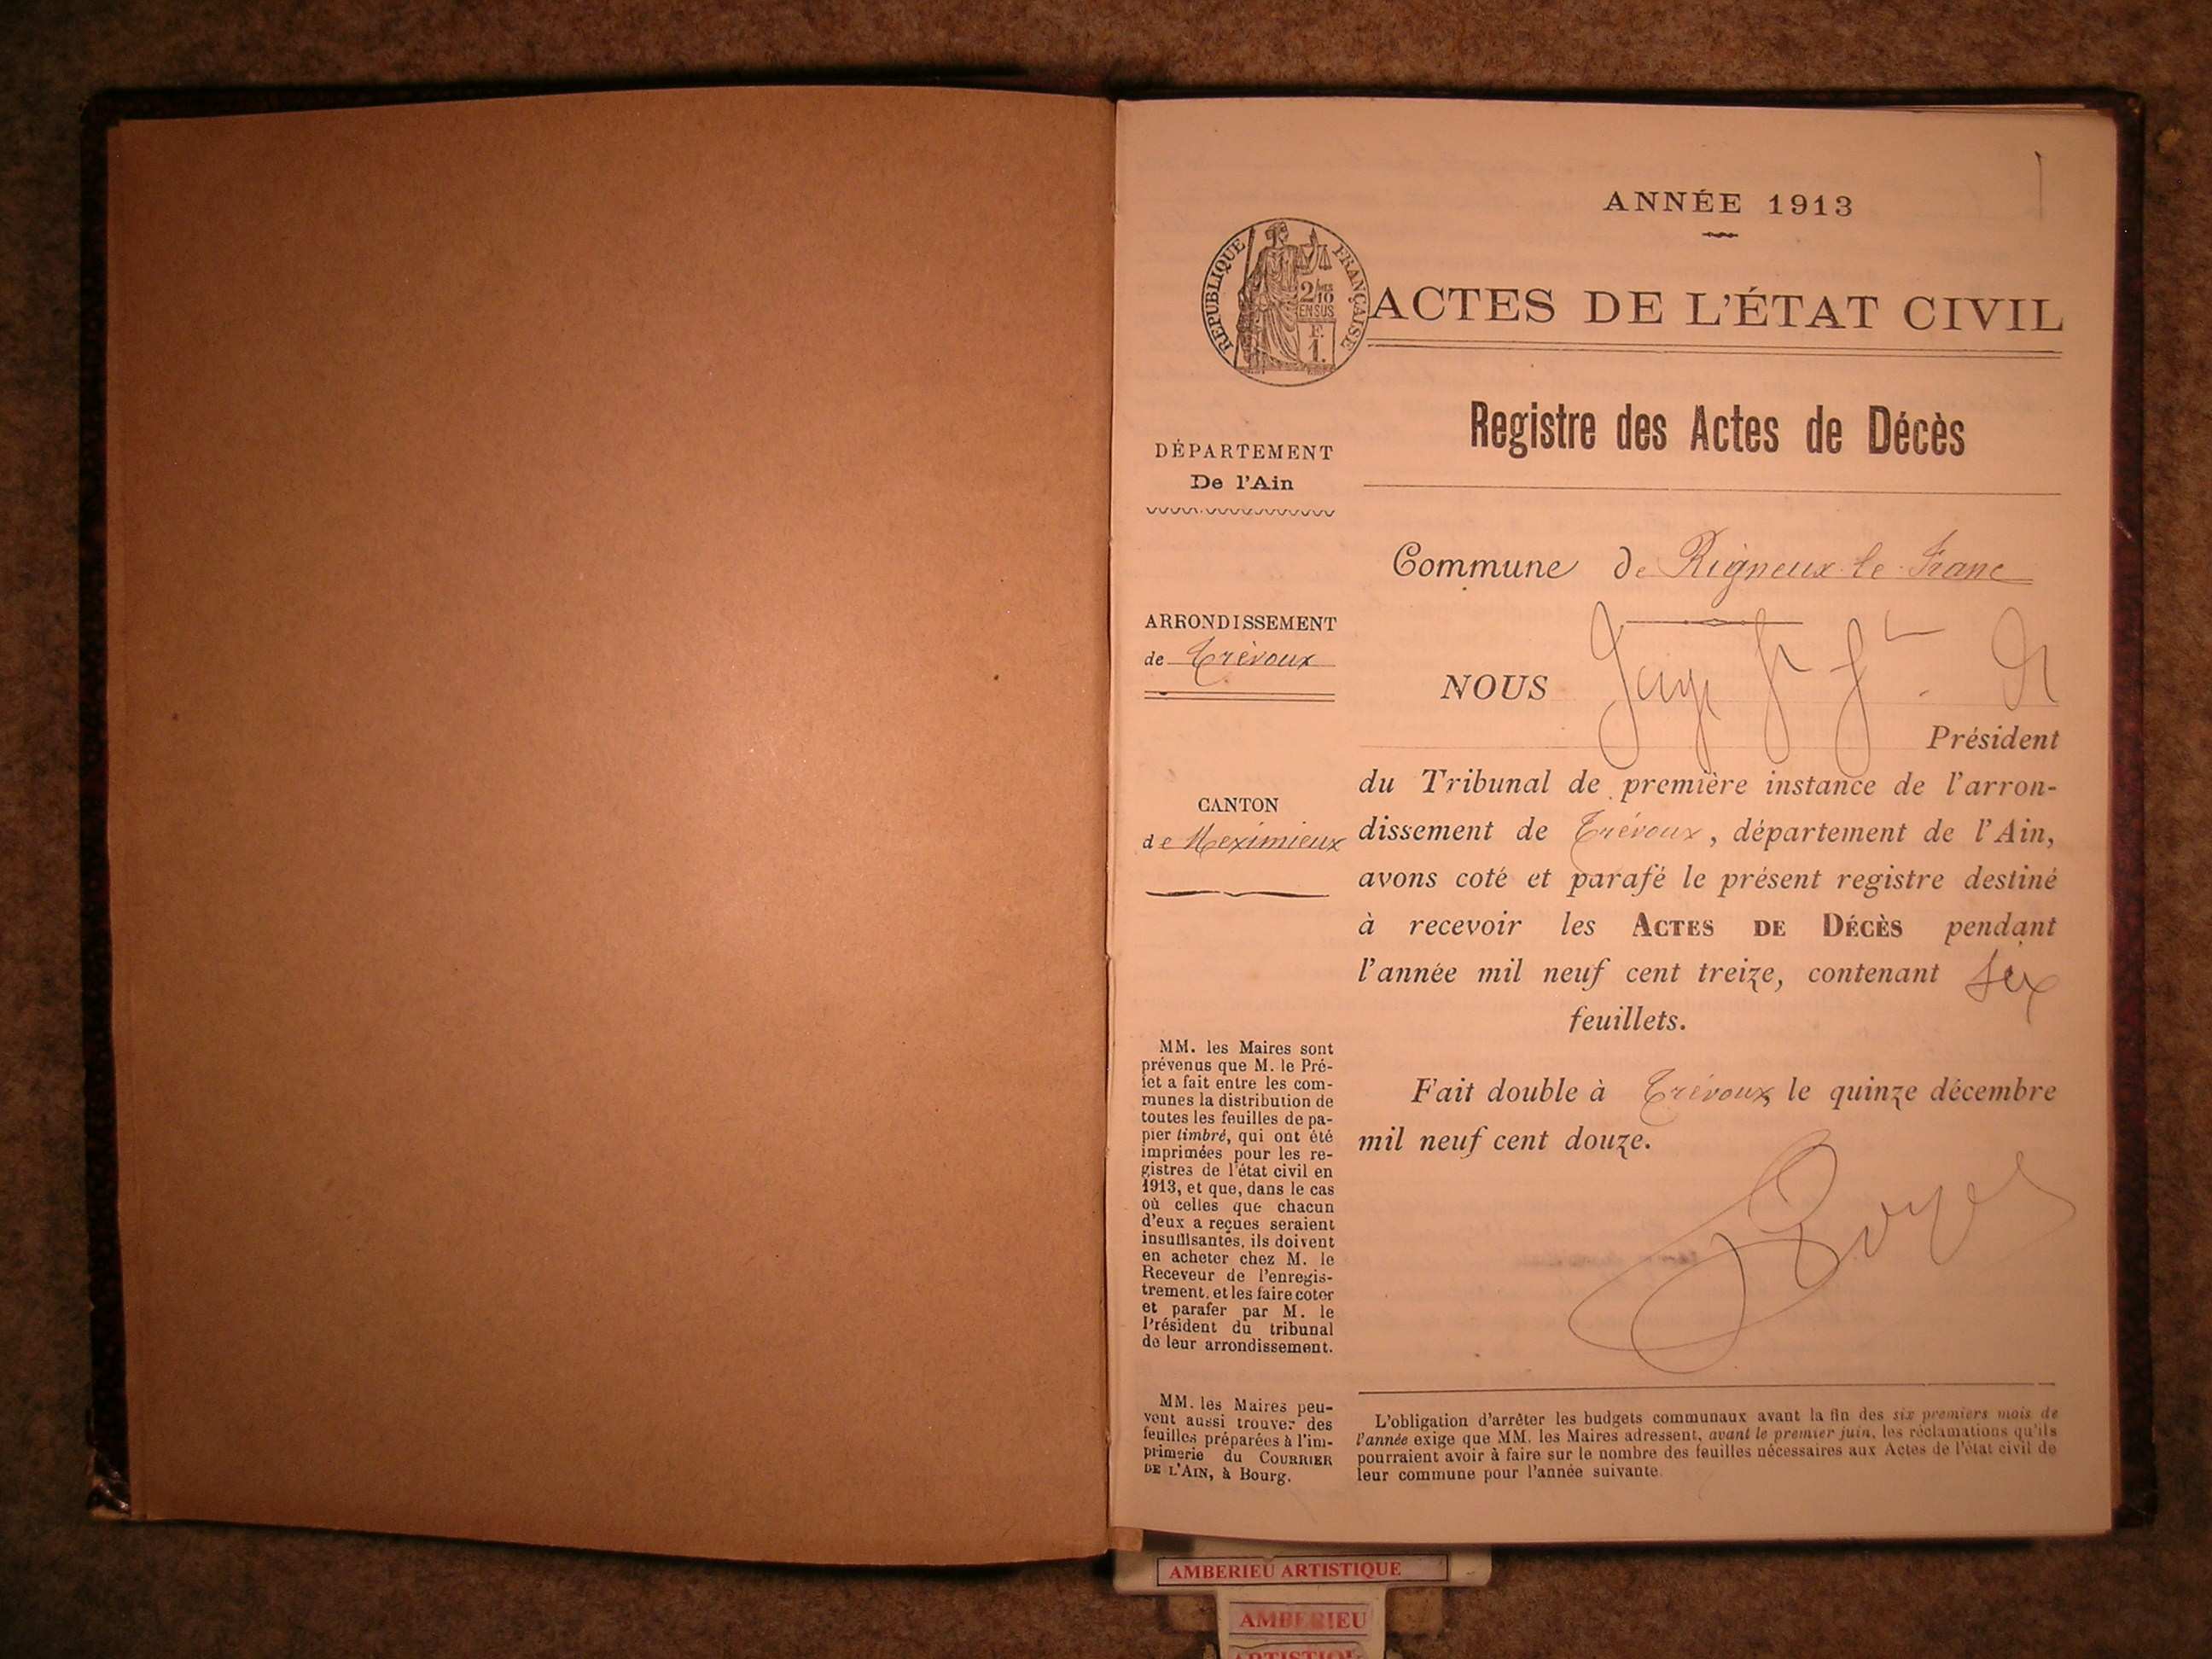 ANNÉE 1913
RÉPUBLIQUE FRANÇAISE
2/10
EN SUS
F.
1.
ACTES DE L'ÉTAT CIVIL
Registre des Actes de Décès
DÉPARTEMENT
De l'Ain
ARRONDISSEMENT
de Trévoux
CANTON
de Meximieux
MM. les Maires sont
prévenus que M. le Pré-
fet a fait entre les com-
munes la distribution de
toutes les feuilles de pa-
pier timbré, qui ont été
imprimées pour les re-
gistres de l'état civil en
1913, et que, dans le cas
où celles que chacun
d'eux a reçues seraient
insuffisantes, ils doivent
en acheter chez M. le
Receveur de l'enregis-
trement, et les faire coter
et parafer par M. le
Président du tribunal
de leur arrondissement.
MM. les Maires peu-
vent aussi trouver des
feuilles préparées à l'im-
primerie du COURRIER
DE L'AIN, à Bourg.
Commune de Rigneux-le-Franc
NOUS
Président
du Tribunal de première instance de l'arron-
dissement de Trévoux, département de l'Ain,
avons coté et parafé le présent registre destiné
à recevoir les ACTES DE DÉCÈS pendant
l'année mil neuf cent treize, contenant six
feuillets.
Fait double à Trévoux, le quinze décembre
mil neuf cent douze.
L'obligation d'arrêter les budgets communaux avant la fin des six premiers mois de
l'année exige que MM. les Maires adressent, avant le premier juin, les réclamations qu'ils
pourraient avoir à faire sur le nombre des feuilles nécessaires aux Actes de l'état civil de
leur commune pour l'année suivante.
AMBERIEU ARTISTIQUE
AMBERIEU
ARTISTIQUE